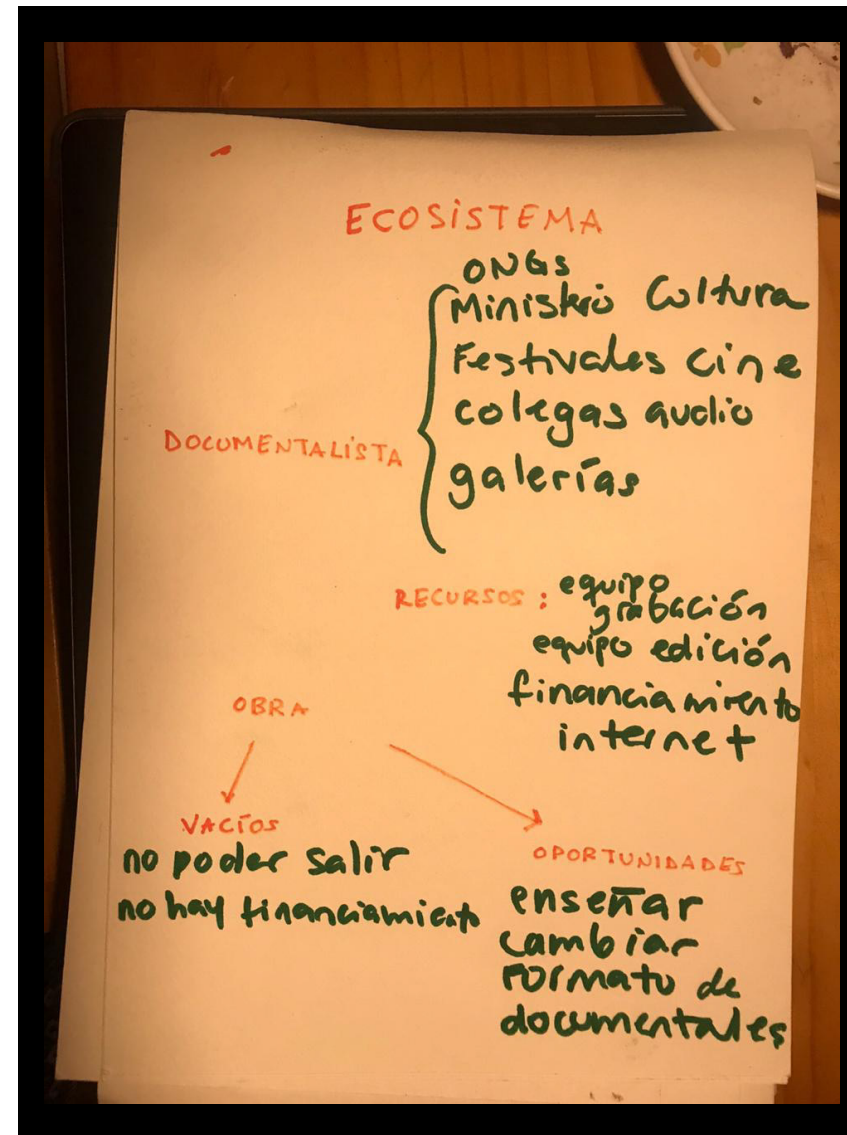 ECOSISTEMA
ONGS
Ministerio Cultura
Festivales cine
colegas audio
DOCUMENTALISTA
galerías
RECURSOS: equipo
grabación
equipo edición
financiamiento
internet
OBRA
VACÍOS
no poder salir
no hay financiamiento
OPORTUNIDADES
enseñar
cambiar
formato de
documentales